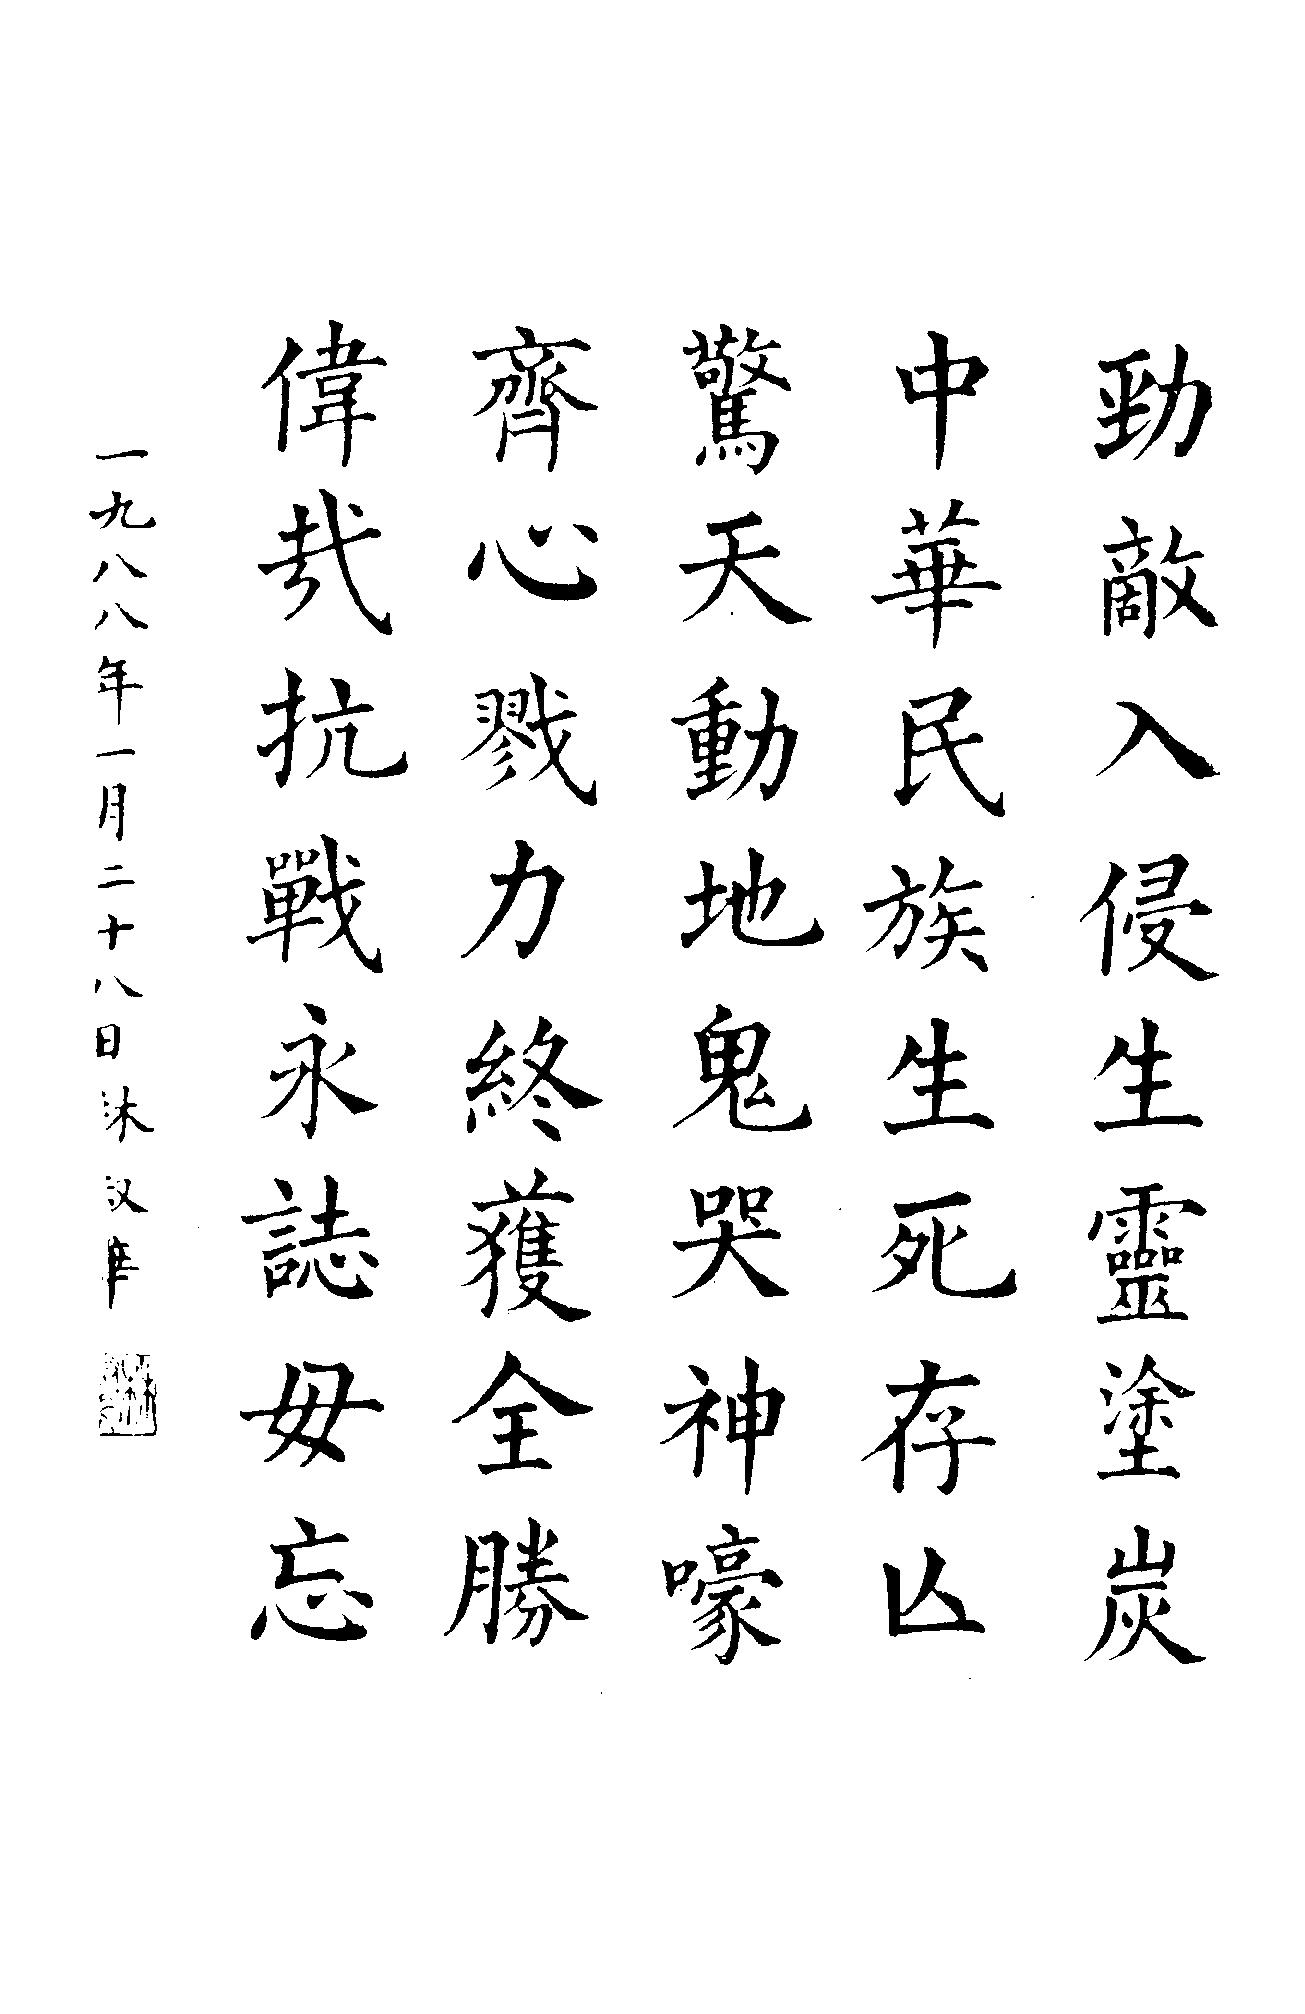 勁敵入侵生靈塗炭
中華民族生死存亾
驚天動地鬼哭神嚎
齊心戮力終獲全勝
偉哉抗戰永誌毋忘
一九八八年一月二十八日沐